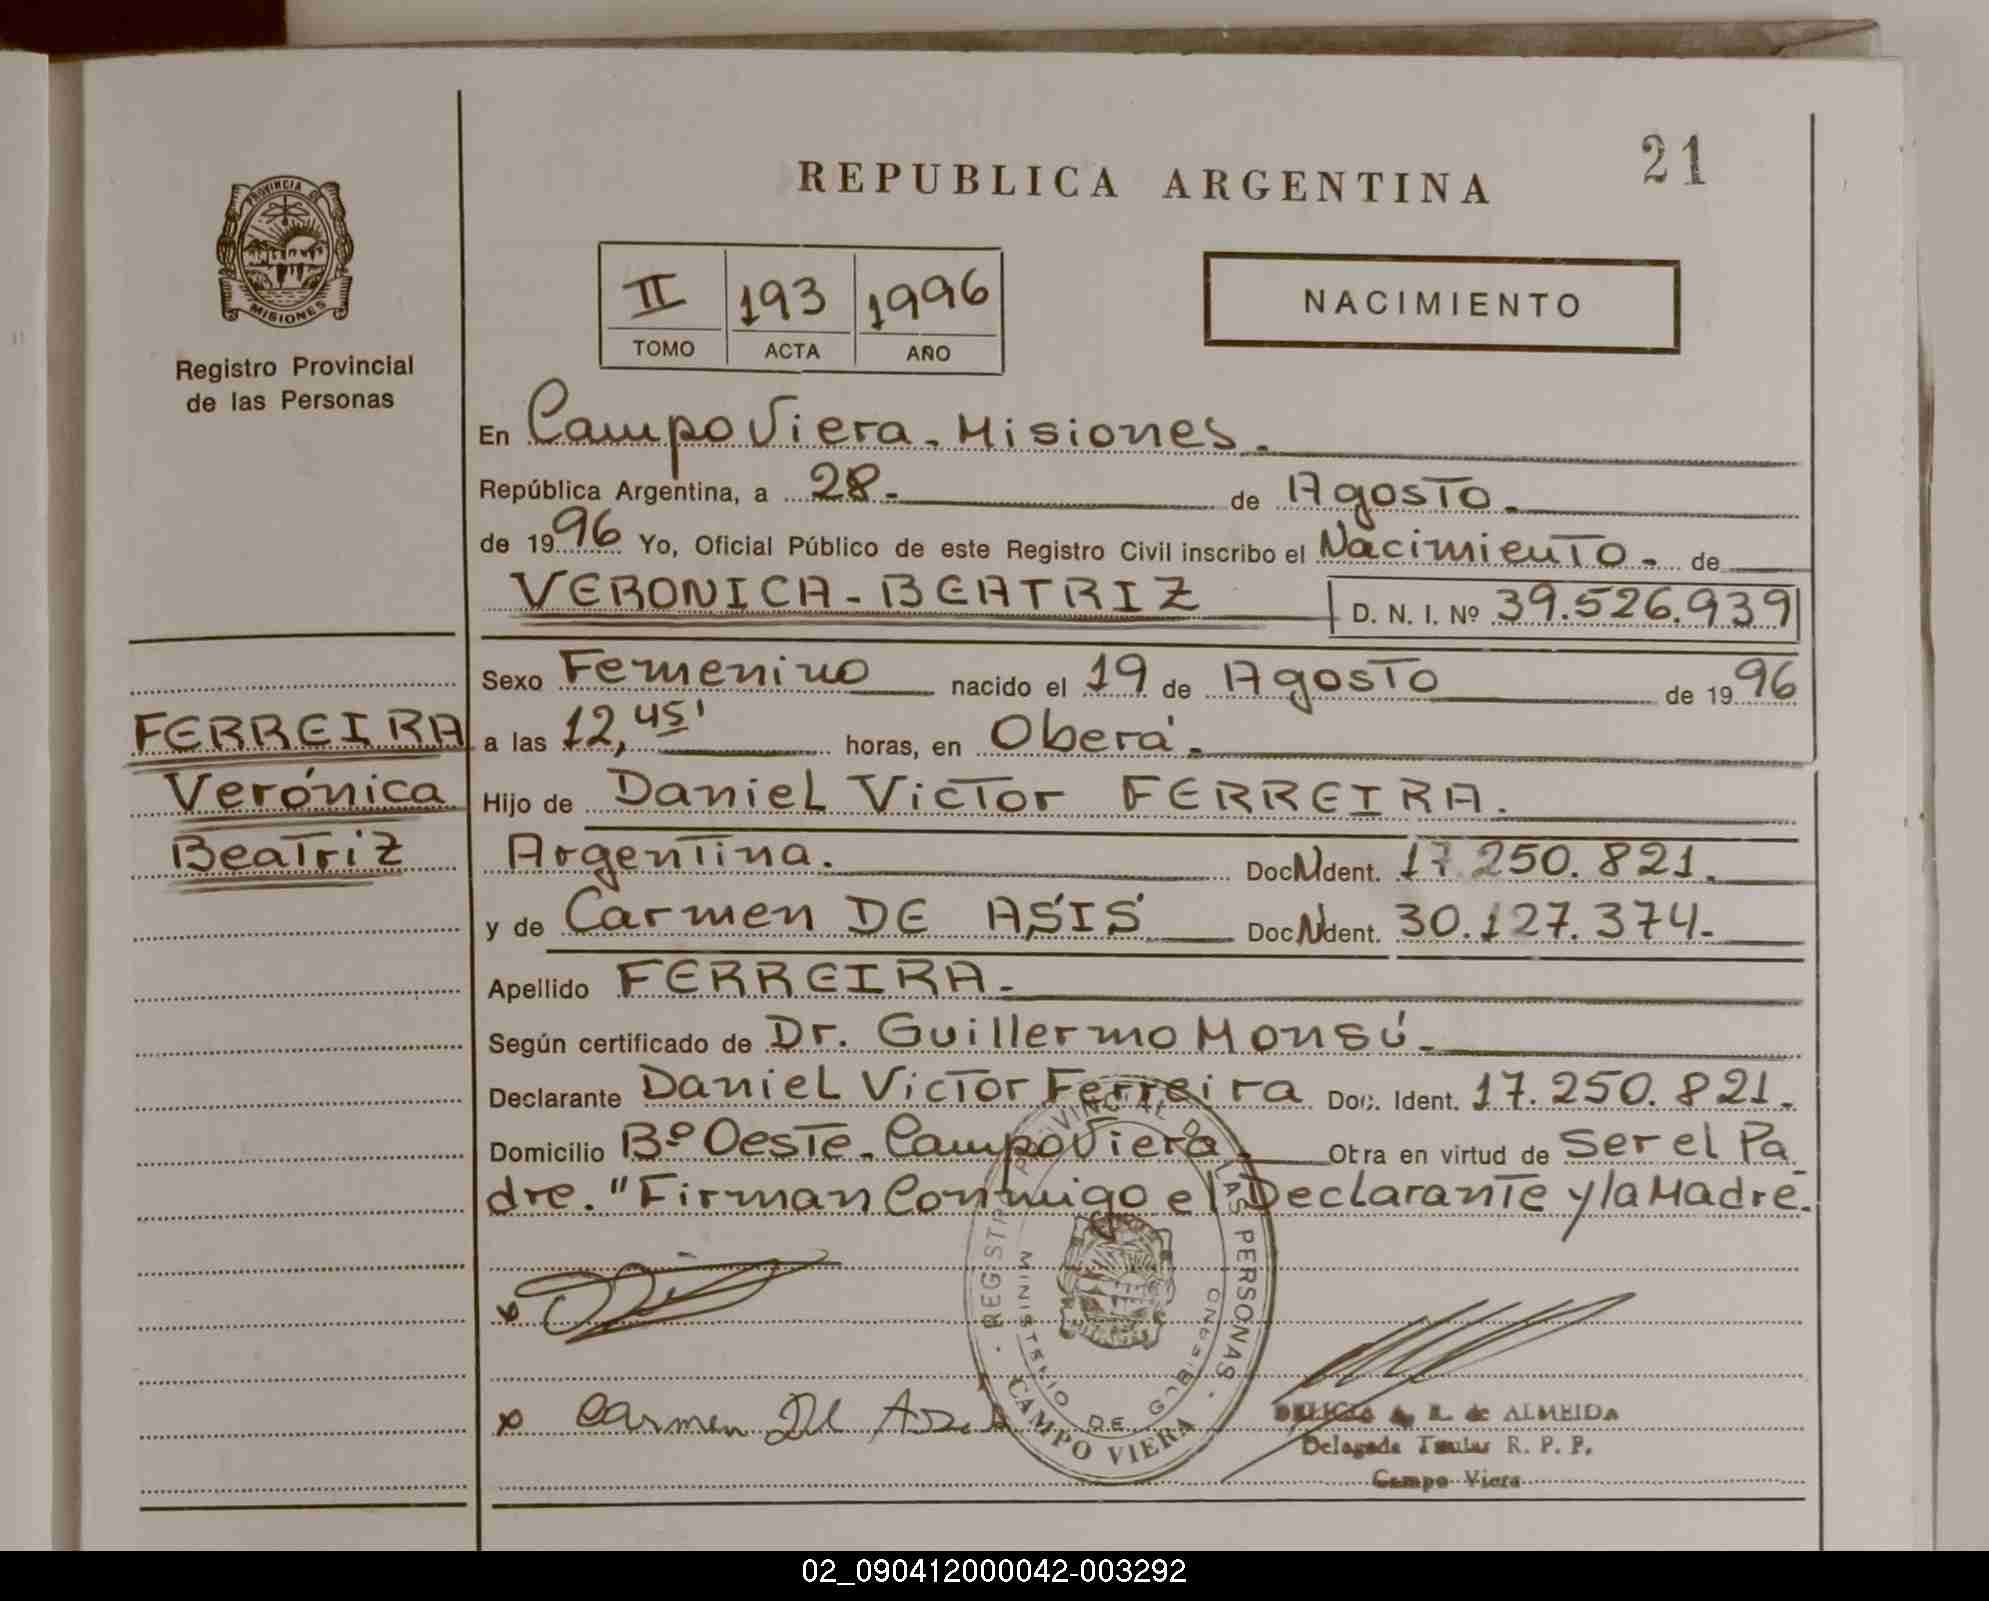 21
REPUBLICA ARGENTINA
PROVINCIA DE
MISIONES
Registro Provincial
de las Personas
II 193 1996
TOMO ACTA AÑO
NACIMIENTO
En Campo Viera - Misiones.
República Argentina, a 28- de Agosto.
de 1996 Yo, Oficial Público de este Registro Civil inscribo el Nacimiento- de
VERONICA-BEATRIZ D. N. I. Nº 39.526.939
Sexo Femenino nacido el 19 de Agosto de 1996
a las 12,45' horas, en Oberá.
Hijo de Daniel Victor FERREIRA.
Argentina. Doc N Ident. 17.250.821.
y de Carmen DE ASÍS Doc N Ident. 30.127.374.
Apellido FERREIRA.
Según certificado de Dr. Guillermo Monsú.
Declarante Daniel Victor Ferreira Doc. Ident. 17.250.821.
Domicilio Bº Oeste - Campo Viera. Obra en virtud de Ser el Pa-
dre. "Firman Conmigo el Declarante y la Madre.
FERREIRA
Verónica
Beatriz
x
x Carmen De Asis
REGISTRO PROVINCIAL DE LAS PERSONAS
MINISTERIO DE GOBIERNO
CAMPO VIERA
DELICIA A. R. de ALMEIDA
Delegada Titular R. P. P.
Campo Viera
02_090412000042-003292